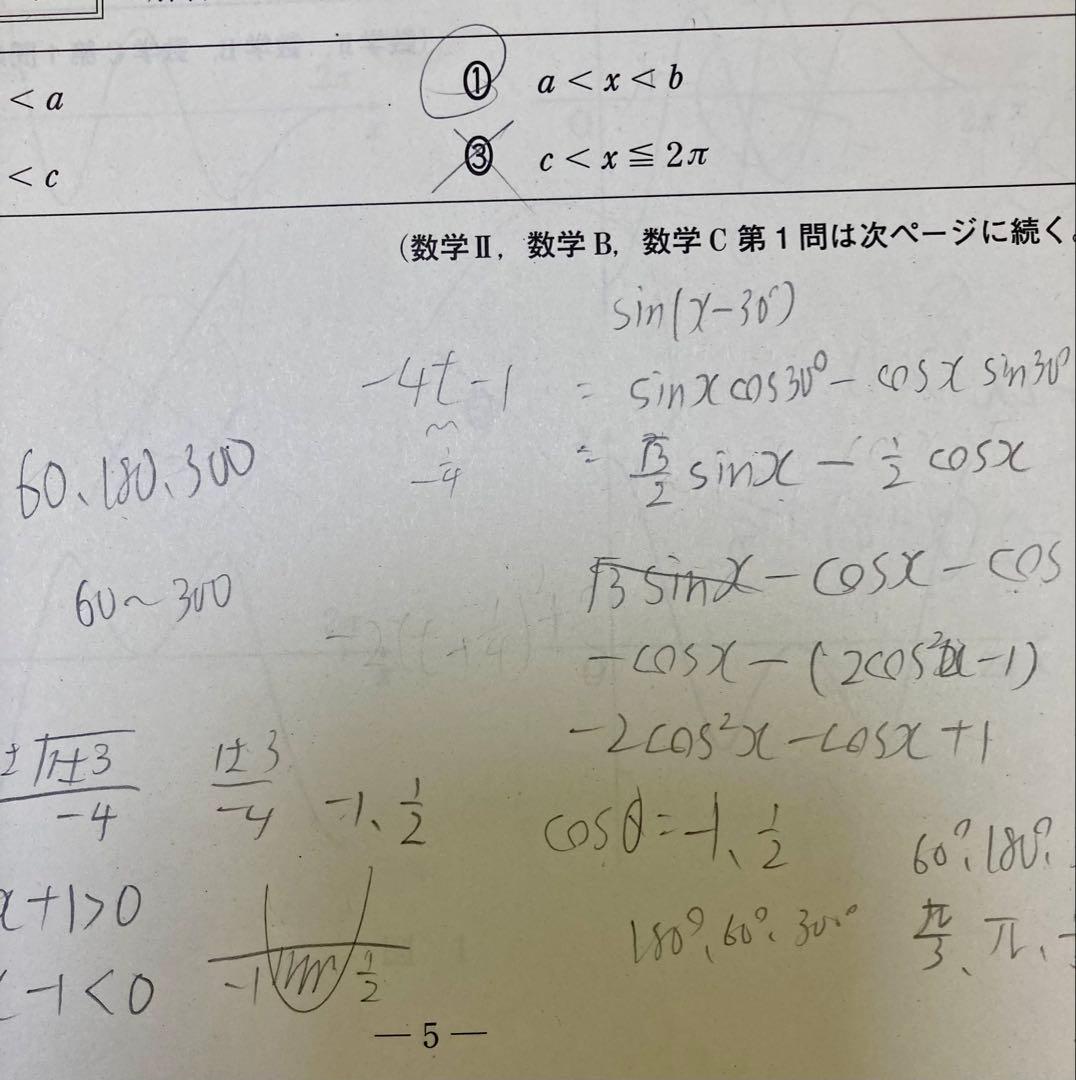 < a
① a < x < b
< c
③ c < x ≦ 2π
(数学Ⅱ, 数学B, 数学C 第1問は次ページに続く。
sin(x-30°)
-4t-1
-1/4
= sinx cos30° - cosx sin30°
= √3/2 sinx - 1/2 cosx
60、180、300
60~300
√3 sinx - cosx - cos
-cosx - (2cos²x-1)
-2cos²x - cosx + 1
± √1±3 / -4
1±3 / -4
-1、1/2
cosθ = -1、1/2
60°、180°、
180°、60°、300°
π/3、π、
x+1>0
-1<0
-1
1/2
— 5 —